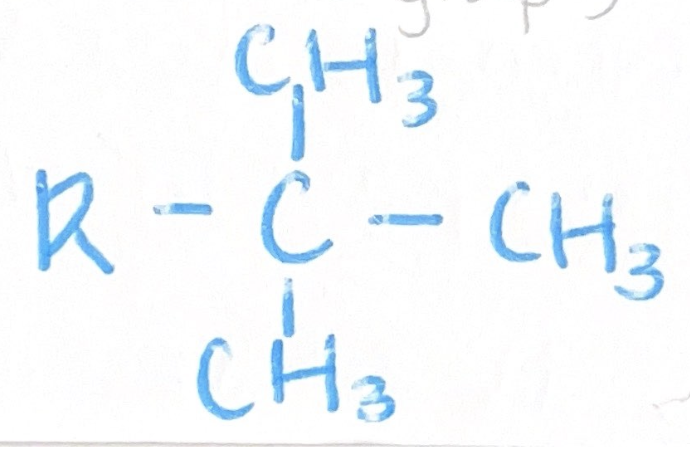 CH3
R - C - CH3
CH3